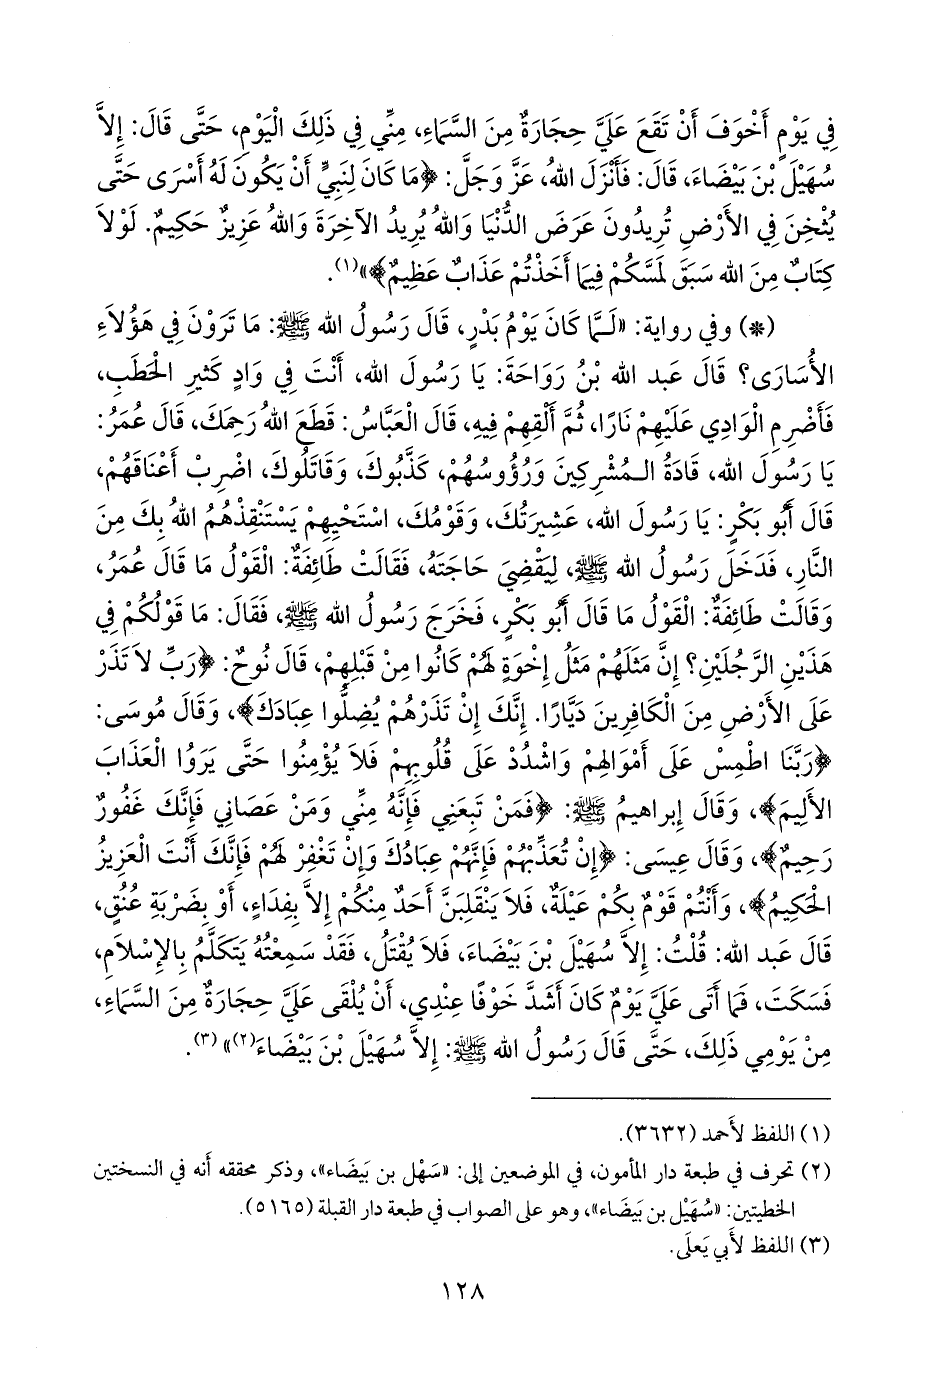 فِي يَوْمٍ أَخْوَفَ أَنْ تَقَعَ عَلَيَّ حِجَارَةٌ مِنَ السَّمَاءِ، مِنِّي فِي ذَلِكَ الْيَوْمِ، حَتَّى قَالَ: إِلاَّ
سُهَيْلَ بْنَ بَيْضَاءَ، قَالَ: فَأَنْزَلَ اللهُ، عَزَّ وَجَلَّ: ﴿مَا كَانَ لِنَبِيٍّ أَنْ يَكُونَ لَهُ أَسْرَى حَتَّى
يُثْخِنَ فِي الأَرْضِ تُرِيدُونَ عَرَضَ الدُّنْيَا وَاللهُ يُرِيدُ الآخِرَةَ وَاللهُ عَزِيزٌ حَكِيمٌ. لَوْلاَ
كِتَابٌ مِنَ الله سَبَقَ لَمَسَّكُمْ فِيمَا أَخَذْتُمْ عَذَابٌ عَظِيمٌ﴾»(١).
(*) وفي رواية: «لَـمَّا كَانَ يَوْمُ بَدْرٍ، قَالَ رَسُولُ الله ﷺ: مَا تَرَوْنَ فِي هَؤُلاَءِ
الأُسَارَى؟ قَالَ عَبد الله بْنُ رَوَاحَةَ: يَا رَسُولَ الله، أَنْتَ فِي وَادٍ كَثِيرِ الْحَطَبِ،
فَأَضْرِمِ الْوَادِي عَلَيْهِمْ نَارًا، ثُمَّ أَلْقِهِمْ فِيهِ، قَالَ الْعَبَّاسُ: قَطَعَ اللهُ رَحِمَكَ، قَالَ عُمَرُ:
يَا رَسُولَ الله، قَادَةُ الـمُشْرِكِينَ وَرُؤُوسُهُمْ، كَذَّبُوكَ، وَقَاتَلُوكَ، اضْرِبْ أَعْنَاقَهُمْ،
قَالَ أَبُو بَكْرٍ: يَا رَسُولَ الله، عَشِيرَتُكَ، وَقَوْمُكَ، اسْتَحْيِهِمْ يَسْتَنْقِذْهُمُ اللهُ بِكَ مِنَ
النَّارِ، فَدَخَلَ رَسُولُ الله ﷺ، لِيَقْضِيَ حَاجَتَهُ، فَقَالَتْ طَائِفَةٌ: الْقَوْلُ مَا قَالَ عُمَرُ،
وَقَالَتْ طَائِفَةٌ: الْقَوْلُ مَا قَالَ أَبُو بَكْرٍ، فَخَرَجَ رَسُولُ الله ﷺ، فَقَالَ: مَا قَوْلُكُمْ فِي
هَذَيْنِ الرَّجُلَيْنِ؟ إِنَّ مَثَلَهُمْ مَثَلُ إِخْوَةٍ لَهُمْ كَانُوا مِنْ قَبْلِهِمْ، قَالَ نُوحٌ: ﴿رَبِّ لاَ تَذَرْ
عَلَى الأَرْضِ مِنَ الْكَافِرِينَ دَيَّارًا. إِنَّكَ إِنْ تَذَرْهُمْ يُضِلُّوا عِبَادَكَ﴾، وَقَالَ مُوسَى:
﴿رَبَّنَا اطْمِسْ عَلَى أَمْوَالِهِمْ وَاشْدُدْ عَلَى قُلُوبِهِمْ فَلاَ يُؤْمِنُوا حَتَّى يَرَوُا الْعَذَابَ
الأَلِيمَ﴾، وَقَالَ إِبراهِيمُ ﷺ: ﴿فَمَنْ تَبِعَنِي فَإِنَّهُ مِنِّي وَمَنْ عَصَانِي فَإِنَّكَ غَفُورٌ
رَحِيمٌ﴾، وَقَالَ عِيسَى: ﴿إِنْ تُعَذِّبْهُمْ فَإِنَّهُمْ عِبَادُكَ وَإِنْ تَغْفِرْ لَهُمْ فَإِنَّكَ أَنْتَ الْعَزِيزُ
الْحَكِيمُ﴾، وَأَنْتُمْ قَوْمٌ بِكُمْ عَيْلَةٌ، فَلاَ يَنْقَلِبَنَّ أَحَدٌ مِنْكُمْ إِلاَّ بِفِدَاءٍ، أَوْ بِضَرْبَةِ عُنُقٍ،
قَالَ عَبد الله: قُلْتُ: إِلاَّ سُهَيْلَ بْنَ بَيْضَاءَ، فَلاَ يُقْتَلُ، فَقَدْ سَمِعْتُهُ يَتَكَلَّمُ بِالإِسْلاَمِ،
فَسَكَتَ، فَمَا أَتَى عَلَيَّ يَوْمٌ كَانَ أَشَدَّ خَوْفًا عِنْدِي، أَنْ يُلْقَى عَلَيَّ حِجَارَةٌ مِنَ السَّمَاءِ،
مِنْ يَوْمِي ذَلِكَ، حَتَّى قَالَ رَسُولُ الله ﷺ: إِلاَّ سُهَيْلَ بْنَ بَيْضَاءَ(٢)» (٣).
(١) اللفظ لأَحمد (٣٦٣٢).
(٢) تحرف في طبعة دار المأمون، في الموضعين إلى: «سَهْل بن بَيضَاء»، وذكر محققه أَنه في النسختين
الخطيتين: «سُهَيْل بن بَيضَاء»، وهو على الصواب في طبعة دار القبلة (٥١٦٥).
(٣) اللفظ لأَبي يَعلَى.
١٢٨